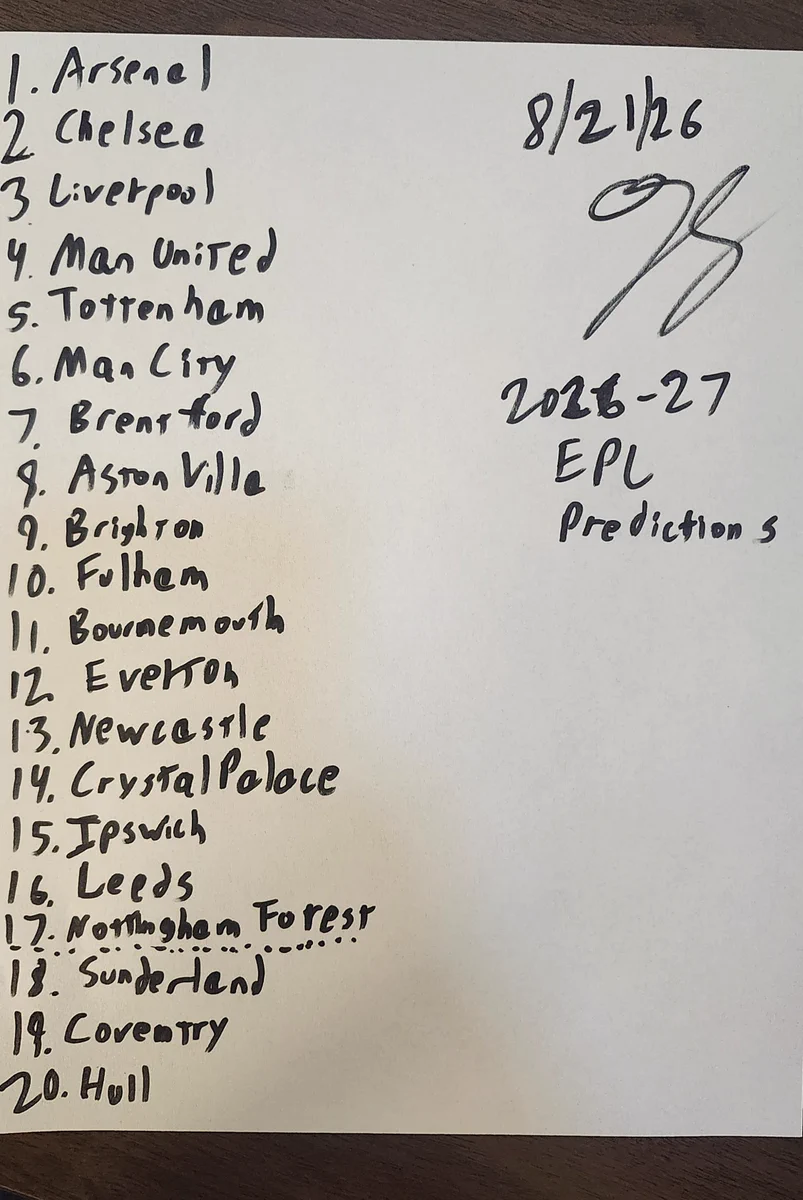 1. Arsenal
2 Chelsea
3 Liverpool
4. Man United
5. Tottenham
6. Man City
7. Brentford
8. Aston Villa
9. Brighton
10. Fulham
11. Bournemouth
12. Everton
13. Newcastle
14. Crystal Palace
15. Ipswich
16. Leeds
17. Nottingham Forest
18. Sunderland
19. Coventry
20. Hull
8/21/26
2026-27
EPL
Predictions